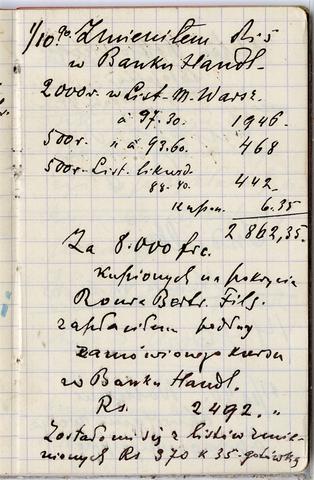 1/10 90. Zmieniłem Rs
w Banku Handl.
2000 r. w List. M. Warsz.
à 97.30. 1946.
500 r. " à 93.60. 468
500 r. List. likwid.
88.40. 442.
kupon. 6.35
2 862,35.
Za 8.000 frc.
kupionych na pokrycie
Bertr. Fils.
zapłaciłem podług
zamówionego kursu
w Banku Handl.
Rs. 2492. "
Zostało mi się z listów zmie-
nionych Rs 370 k 35 gotówką